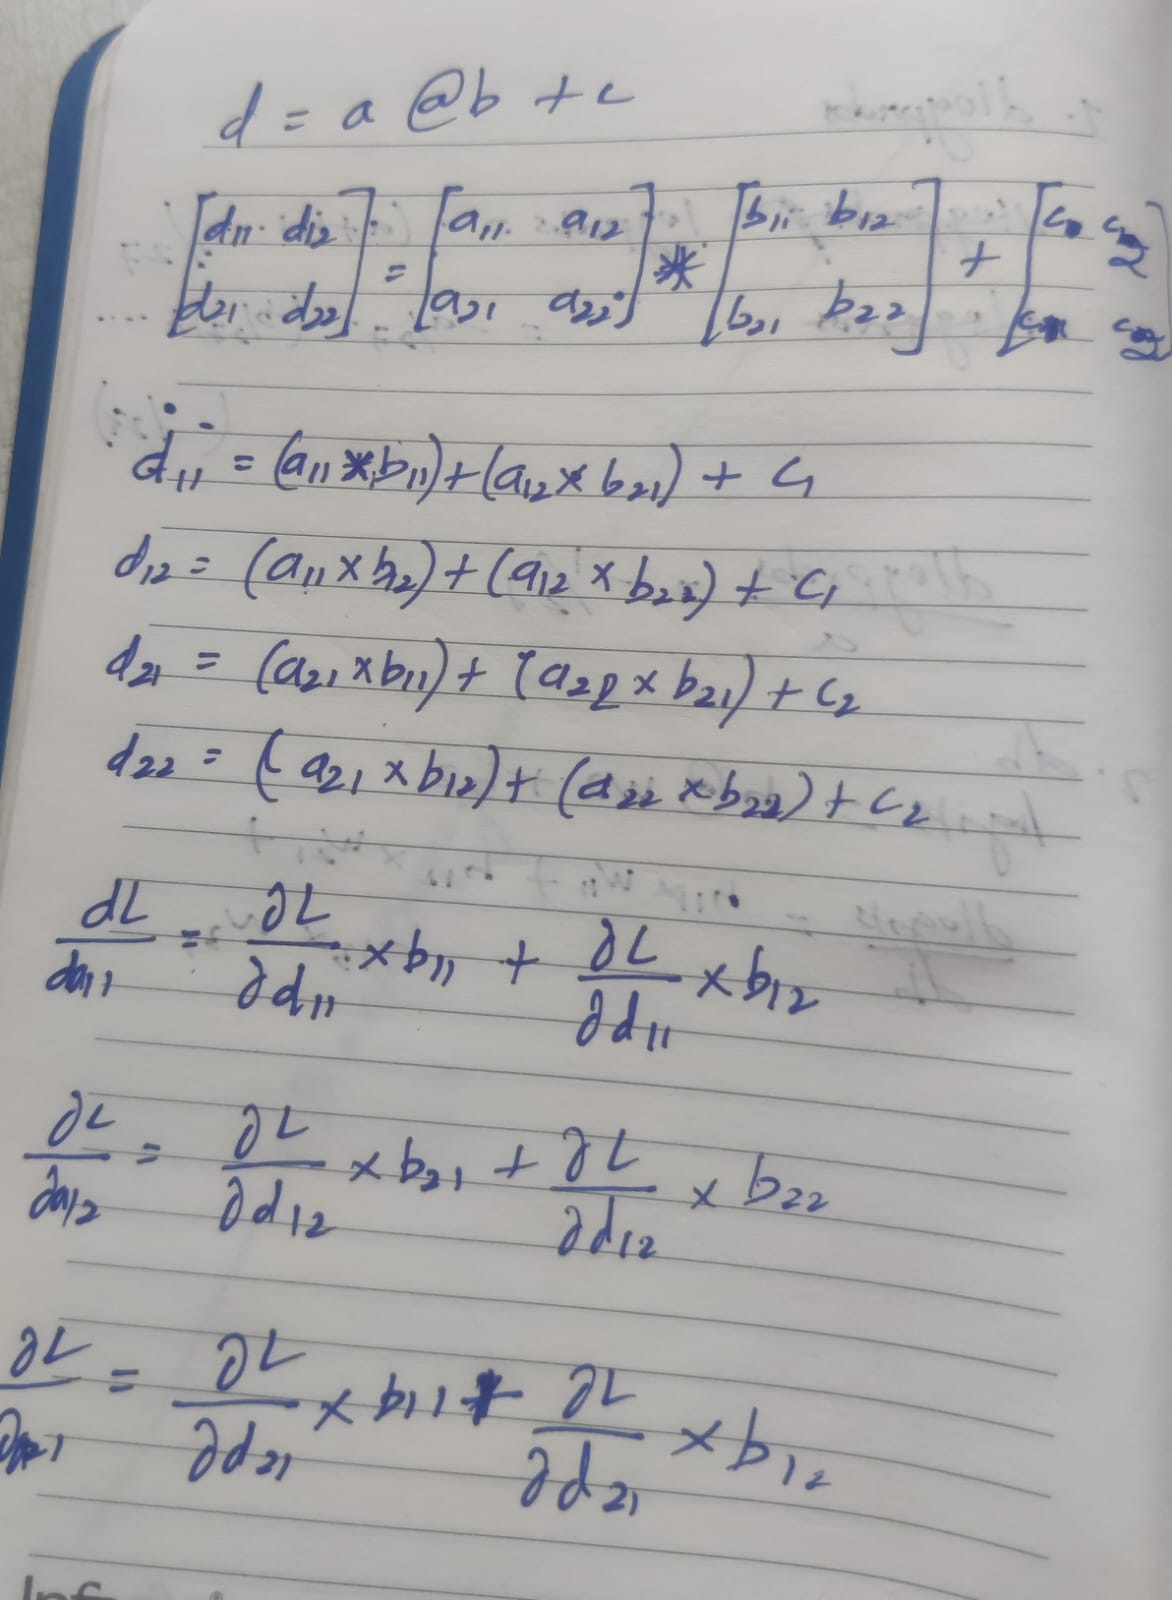 d = a @ b + c
[d11 d12 d21 d22] = [a11 a12 a21 a22] * [b11 b12 b21 b22] + [c c2 c c2]
d11 = (a11 * b11) + (a12 × b21) + c1
d12 = (a11 × b12) + (a12 × b22) + c1
d21 = (a21 × b11) + (a22 × b21) + c2
d22 = (a21 × b12) + (a22 × b22) + c2
dL/da11 = ∂L/∂d11 × b11 + ∂L/∂d11 × b12
∂L/∂a12 = ∂L/∂d12 × b21 + ∂L/∂d12 × b22
∂L/∂a21 = ∂L/∂d21 × b11 + ∂L/∂d21 × b12